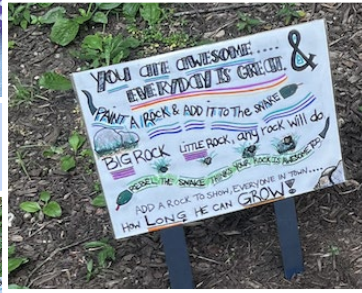 YOU ARE AWESOME.....
& EVERYDAY IS GREAT.
PAINT A ROCK & ADD IT TO THE SNAKE
BIG ROCK LITTLE ROCK, and ROCK will do
THE SNAKE THINKS YOUR ROCK IS AWESOME TO
ADD A ROCK TO SHOW, EVERYONE IN TOWN....
HOW LONG HE CAN GROW!